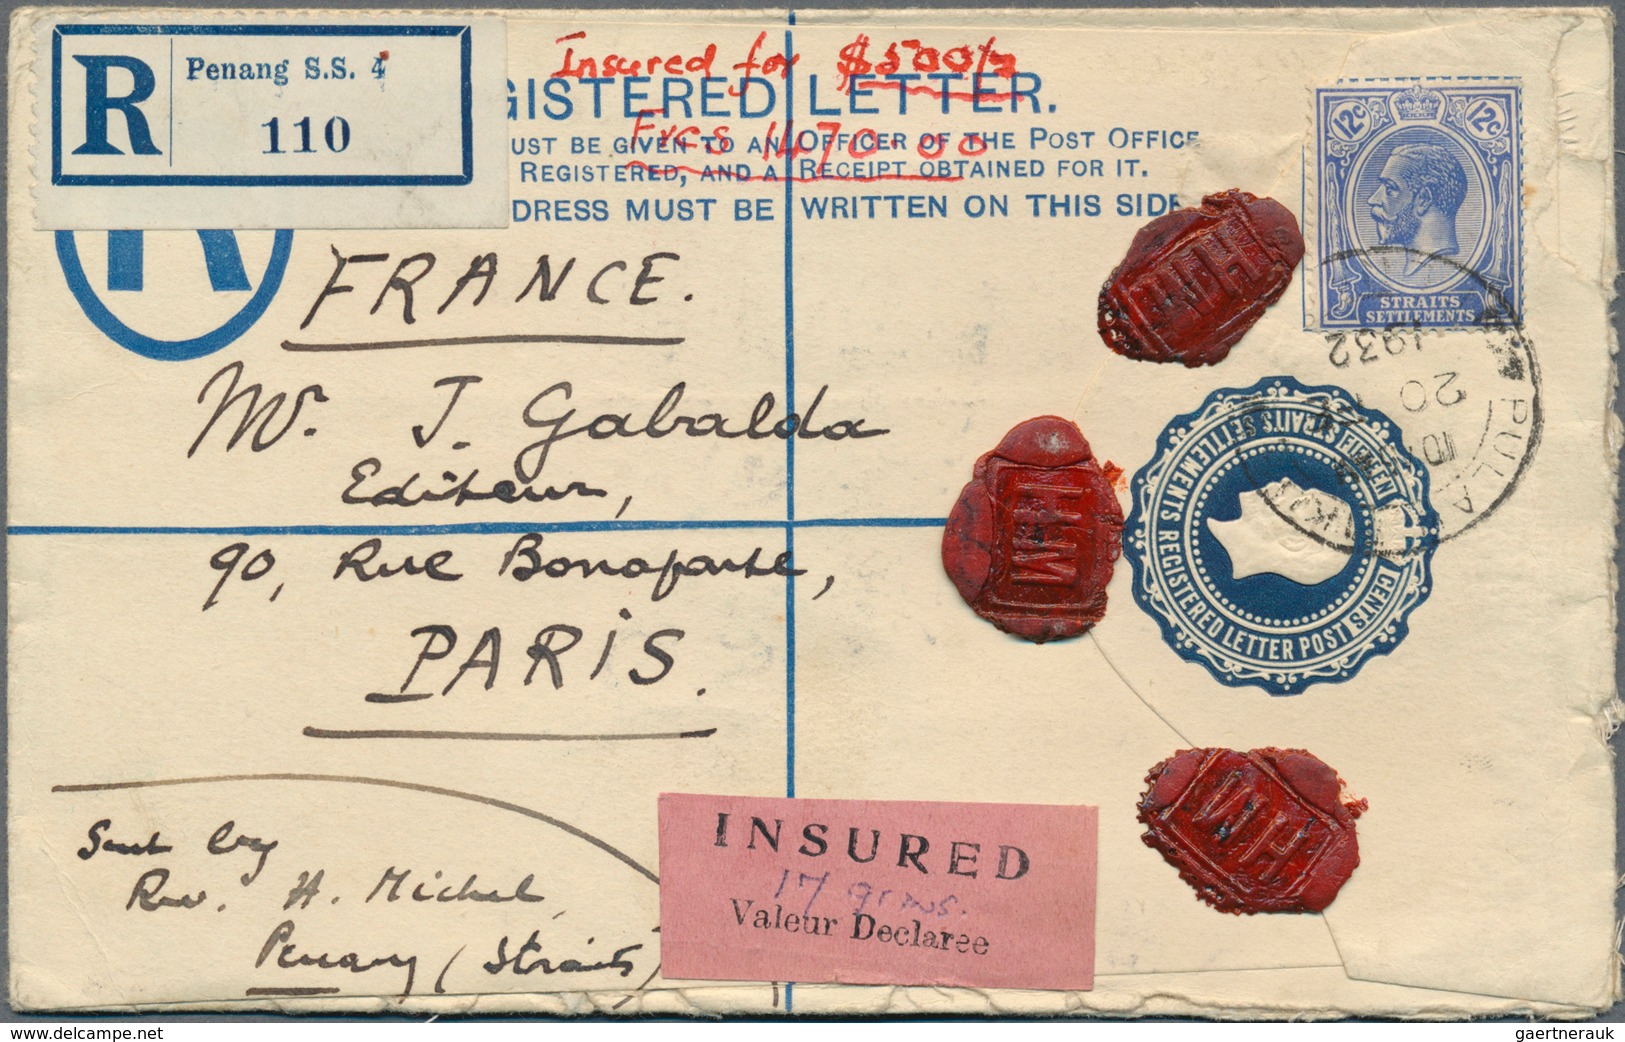 R
Penang S.S. 4
110
Insured for $500/=
GISTERED LETTER.
Frcs 1470.00
UST BE GIVEN TO AN OFFICER OF THE POST OFFICE
REGISTERED, AND A RECEIPT OBTAINED FOR IT.
DRESS MUST BE WRITTEN ON THIS SIDE
12c 12c
STRAITS
SETTLEMENTS
FRANCE.
Mr. J. Gabalda
Editeur,
90, Rue Bonaparte,
PARIS.
1932
20
PULA
STRAITS SETTLEMENTS REGISTERED LETTER POST
FIFTEEN CENTS
HM
HM
HM
Sent by
Rev. H. Michel,
Penang (Straits)
INSURED
17 grms.
Valeur Declaree
delcampe.net
gaertnerauk